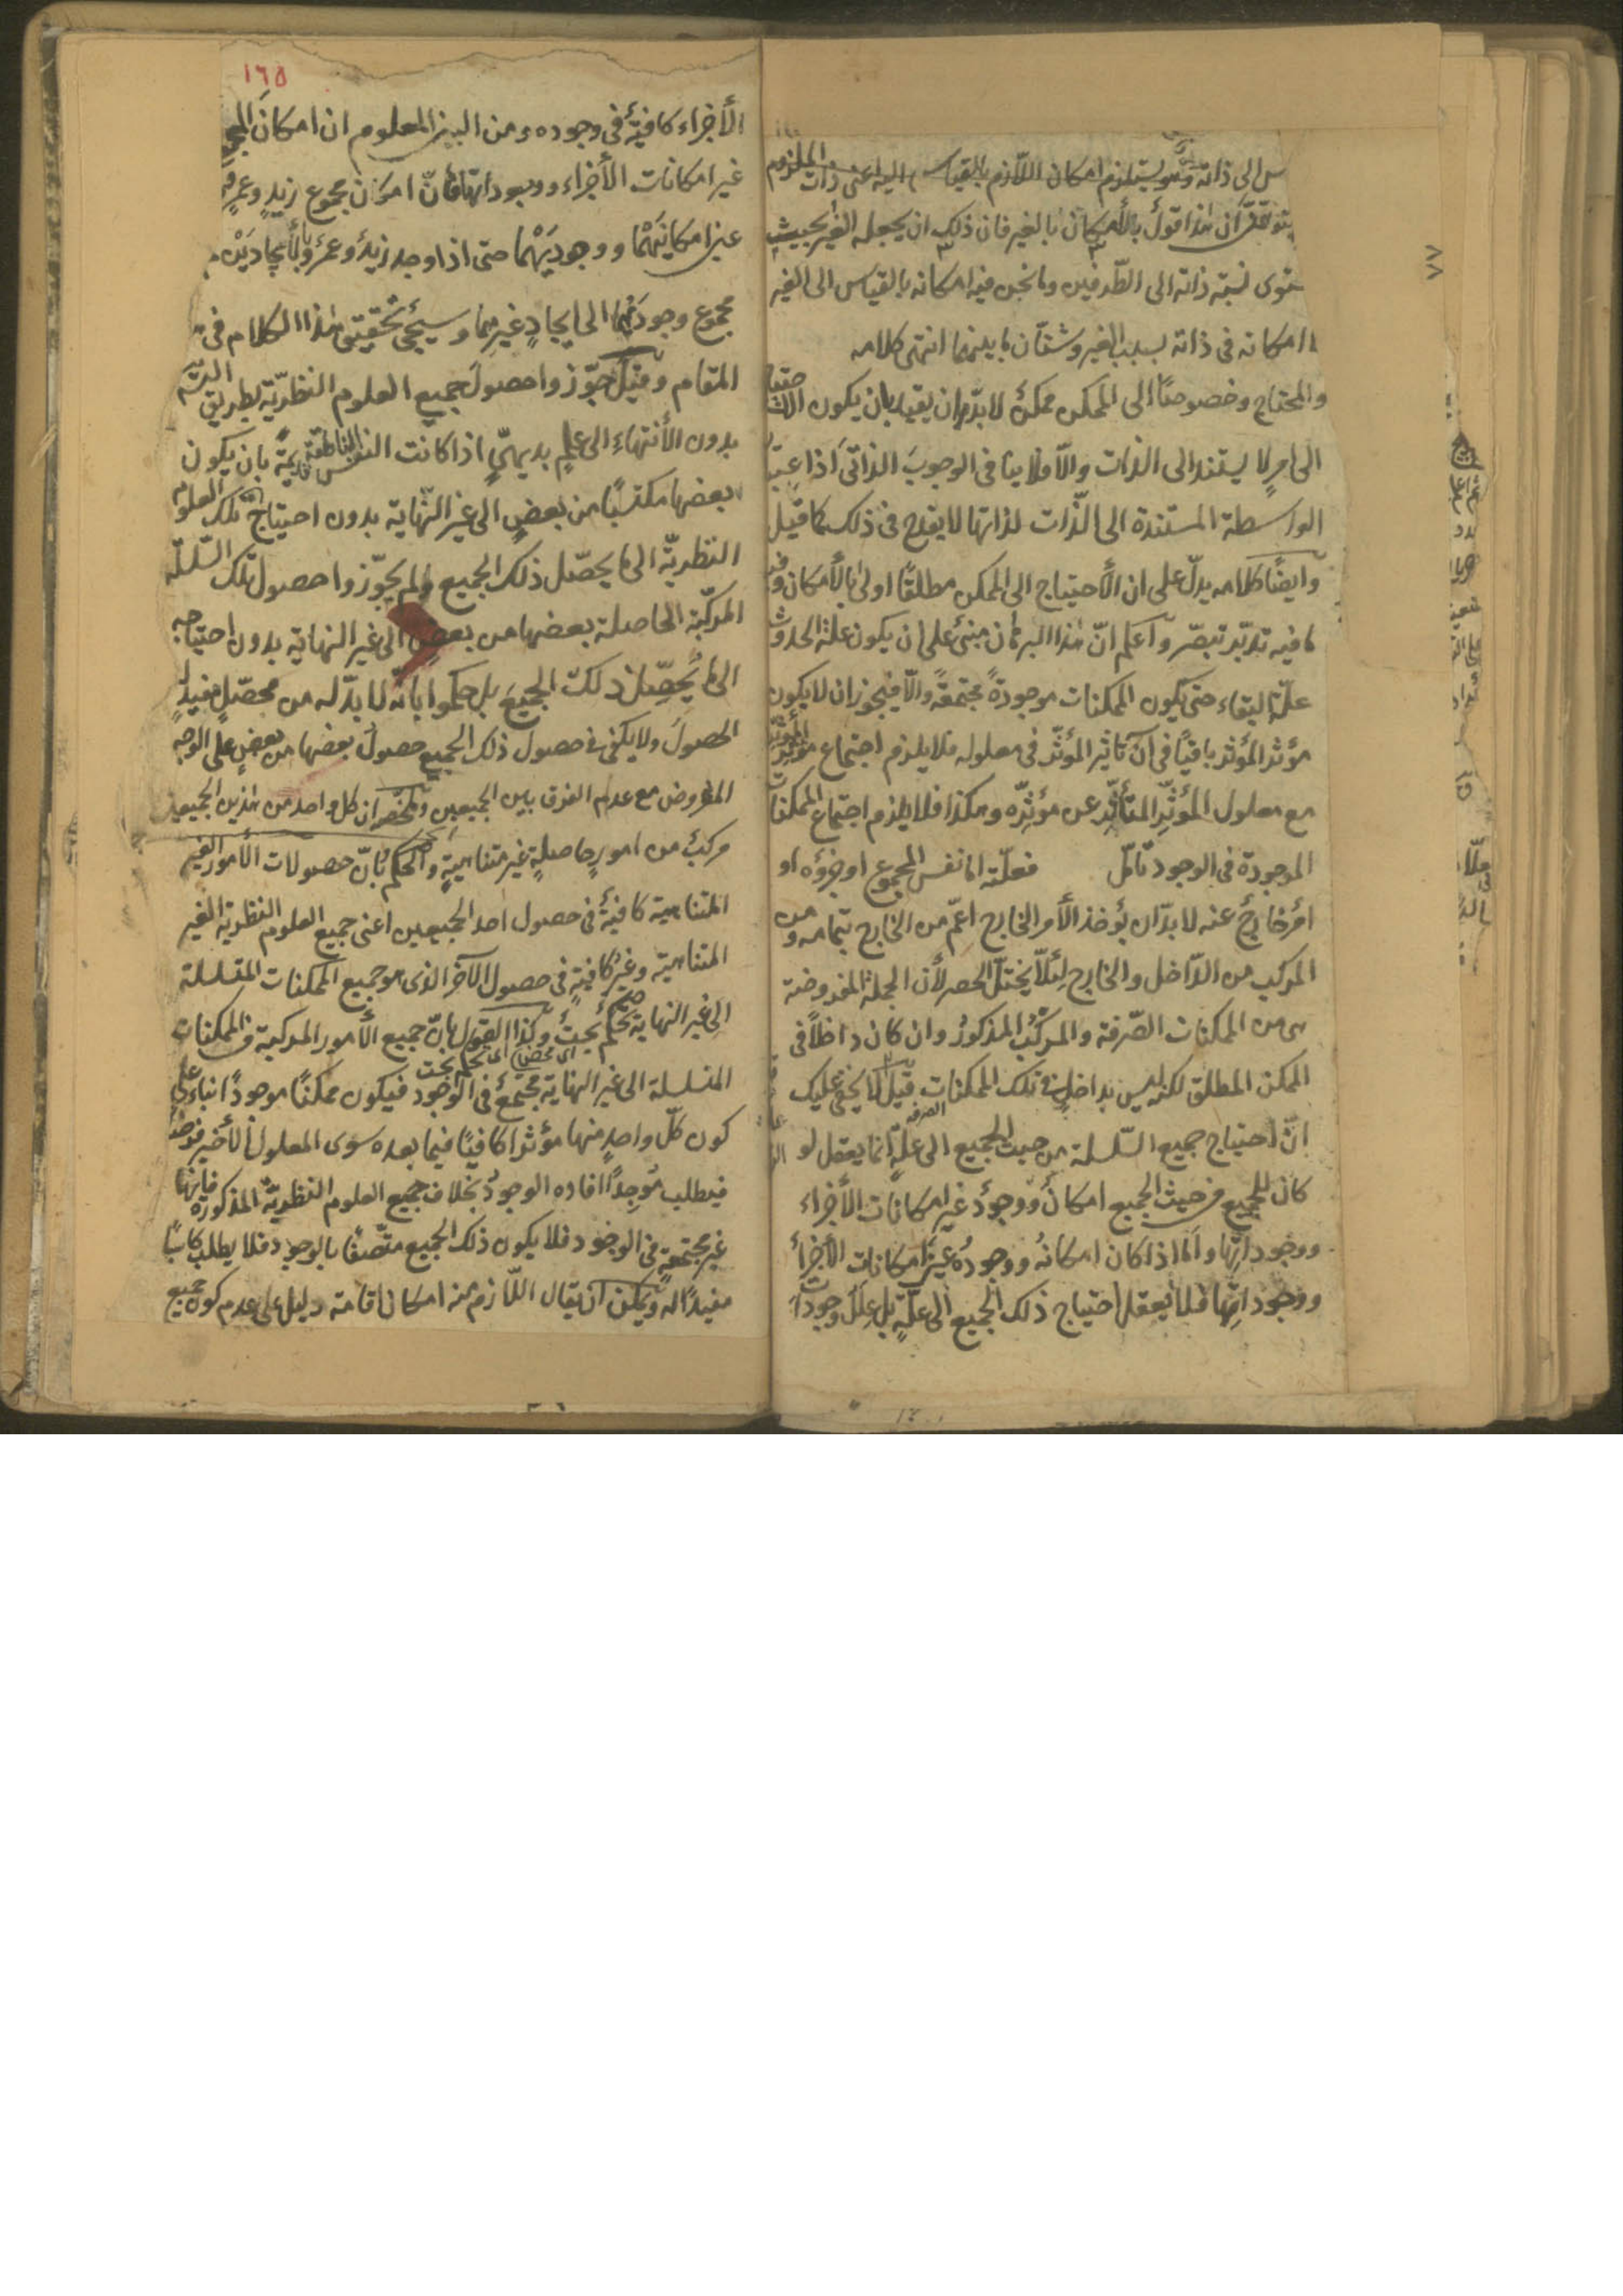 س الى ذاته وهو يستلزم امكان اللّازم بالقياس اليه اعنى ذات الملزوم
يتوهّم ان هذا قول بالأمكان بالغير فان ذلك ان يجعله الغير بحيث
يستوى نسبة ذاته الى الطّرفين وما نحن فيه امكانه بالقياس الى الغير
لا امكانه فى ذاته بسبب الغير وشتّان ما بينهما انتهى كلامه
والمحتاج وخصوصًا الى الممكن ممكنٌ لا بدّ ان يقيد بان يكون الاحتياج
الى امرٍ لا يستند الى الذات والّا فلا ينافى الوجوبَ الذاتىّ اذا عيّنة
الواسطة المستندة الى الذّات لذاتها لا يقدح فى ذلك كما قيل
وايضًا كلامه يدلّ على ان الأحتياج الى الممكن مطلقًا اولى بالأمكان وفيه
ما فيه تدبّر تبصّر واعلم انّ هذا البرهان مبنىٌ على ان يكون علّة الحدوث
علّة البقاء حتى يكون الممكنات موجودةً مجتمعةً والّا فيجوز ان لا يكون
مؤثر المؤثر باقيًا فى آن تاثير المؤثّر فى معلوله فلا يلزم اجتماع مؤثّر المؤثّر
مع معلول المؤثّرِ المتأثّرِ عن مؤثّرِه وهكذا فلا يلزم اجتماع الممكنات
الموجودة فى الوجود تأمّل فعلّته اما نفس المجموع او جزؤه او
امرٌ خارجٌ عنه لا بدّ ان يؤخذ الأمر الخارج اعمّ من الخارج بتمامه ومن
المركب من الدّاخل والخارج لِئلّا يختلّ الحصر لأن الجملة المفروضة
هى من الممكنات الصّرفة والمركّبُ المذكورُ وان كان داخلاً فى
الممكن المطلق لكنه ليس بداخلٍ فى تلك الممكنات الصرفه قيل لا يخفى عليك
انّ احتياج جميع السّلسلة من حيث الجميع الى علّةٍ انما يعقل لو
كان للجميع من حيث الجميع امكانٌ ووجودٌ غير امكانات الأجزاء
ووجوداتِها وامّا اذا كان امكانهُ ووجودُه عينَ امكانات الأجزاءِ
ووجوداتِها فلا يعقل احتياج ذلك الجميع الى علّةٍ بل علل وجودات
١٦٥
الأجزاء كافيةٌ فى وجوده ومن البين المعلوم ان امكانَ المجموع
غير امكانات الأجزاء ووجوداتها فانّ امكان مجموع زيدٍ وعمرٍو
عين امكانَيْهِما ووجودَيْهِما حتى اذا وجد زيدٌ وعمرٌو بالأيجادَيْن
مجموع وجودَيْهما الى ايجادٍ غيرِهما وسيجئ تحقيق هذا الكلام فى
المقام وقيل جوّزوا حصولَ جميع العلوم النظريّة بطريق التسـ
بدون الأنتهاءِ الى علمٍ بديهىٍّ اذا كانت النفس الناطقة قديمةً بان يكون
بعضها مكتسبًا من بعضٍ الى غير النّهاية بدون احتياج تلك العلوم
النظريّة الى ما يحصّل ذلك الجميع ولم يجوّزوا حصول تلك السّلسلة
المركّبة الحاصلة بعضها من بعضٍ الى غير النهاية بدون احتياجه
الى ما يُحصّل ذلك الجميعَ بل حكموا بانّه لا بدّ له من محصّلٍ مفيدٍ
الحصولَ ولا يكفى فى حصول ذلك الجميع حصولُ بعضها من بعضٍ على الوجه
المفروض مع عدم الفرق بين الجميعين وتلخيصه ان كل واحد من هذين الجميعين
مركّبٌ من امورٍ حاصلةٍ غير متناهيةٍ والحكم بانّ حصولات الأمور الغير
المتناهية كافيةٌ فى حصول احد الجميعين اعنى جميع العلوم النظرية الغير
المتناهية وغيرُ كافيةٍ فى حصول الآخر الذى هو جميع الممكنات المتسلسلة
الى غير النهاية تحكّمٌ بحتٌ وكذا القول بانّ جميع الأمور المركبة من الممكنات
المتسلسلة الى غير النهاية مجتمعٌ فى الوجود فيكون ممكنًا موجودًا بناءً على
كون كلّ واحدٍ منها مؤثرا كافيًا فيما بعده سوى المعلول الأخير فرضا
فيطلب مُوجِدًا افاده الوجودُ بخلاف جميع العلوم النظريّة المذكورة فانها
غير مجتمعةٍ فى الوجود فلا يكون ذلك الجميع متّصفًا بالوجود فلا يطلب كاسبًا
مفيدًا له ويمكن ان يقال اللّازم منه امكان اقامة دليل على عدم كون جميع